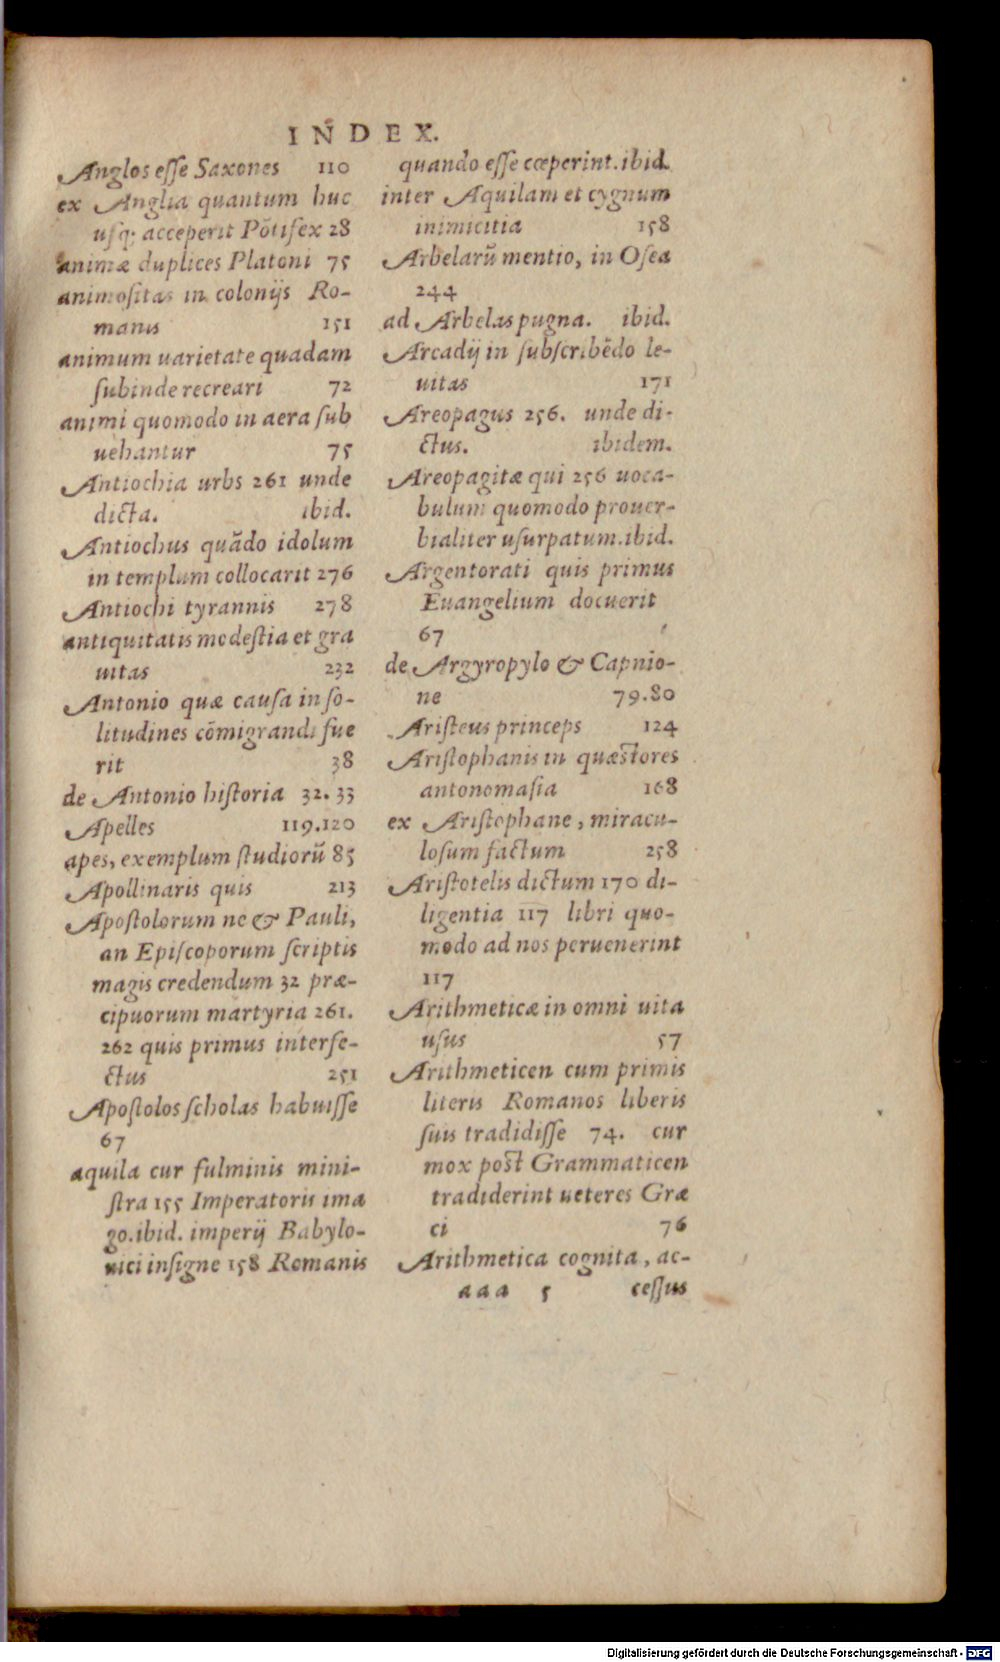 INDEX.
Anglos esse Saxones 110
ex Anglia quantum huc
usq; acceperit Põtifex 28
animæ duplices Platoni 75
animositas in colonijs Ro-
manis 151
animum uarietate quadam
subinde recreari 72
animi quomodo in aera sub
uehantur 75
Antiochia urbs 261 unde
dicta. ibid.
Antiochus quãdo idolum
in templum collocarit 276
Antiochi tyrannis 278
antiquitatis modestia et gra
uitas 232
Antonio quæ causa in so-
litudines cõmigrandi fue
rit 38
de Antonio historia 32.33
Apelles 119.120
apes, exemplum studiorũ 85
Apollinaris quis 213
Apostolorum ne & Pauli,
an Episcoporum scriptis
magis credendum 32 præ-
cipuorum martyria 261.
262 quis primus interfe-
ctus 251
Apostolos scholas habuisse
67
aquila cur fulminis mini-
stra 155 Imperatoris ima
go.ibid. imperij Babylo-
nici insigne 158 Romanis
quando esse cœperint.ibid.
inter Aquilam et cygnum
inimicitia 158
Arbelarũ mentio, in Osea
244
ad Arbelas pugna. ibid.
Arcadij in subscribẽdo le-
uitas 171
Areopagus 256. unde di-
ctus. ibidem.
Areopagitæ qui 256 uoca-
bulum quomodo prouer-
bialiter usurpatum.ibid.
Argentorati quis primus
Euangelium docuerit
67
de Argyropylo & Capnio-
ne 79.80
Aristeus princeps 124
Aristophanis in quæstores
antonomasia 168
ex Aristophane, miracu-
losum factum 258
Aristotelis dictum 170 di-
ligentia 117 libri quo-
modo ad nos peruenerint
117
Arithmeticæ in omni uita
usus 57
Arithmeticen cum primis
literis Romanos liberis
suis tradidisse 74. cur
mox post Grammaticen
tradiderint ueteres Græ
ci 76
Arithmetica cognita, ac-
aaa 5 cessus
Digitalisierung gefördert durch die Deutsche Forschungsgemeinschaft - DFG